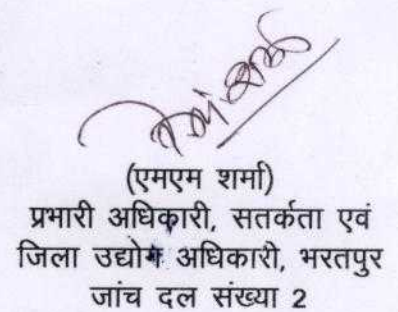 (एमएम शर्मा)
प्रभारी अधिकारी, सतर्कता एवं
जिला उद्योग अधिकारी, भरतपुर
जांच दल संख्या 2